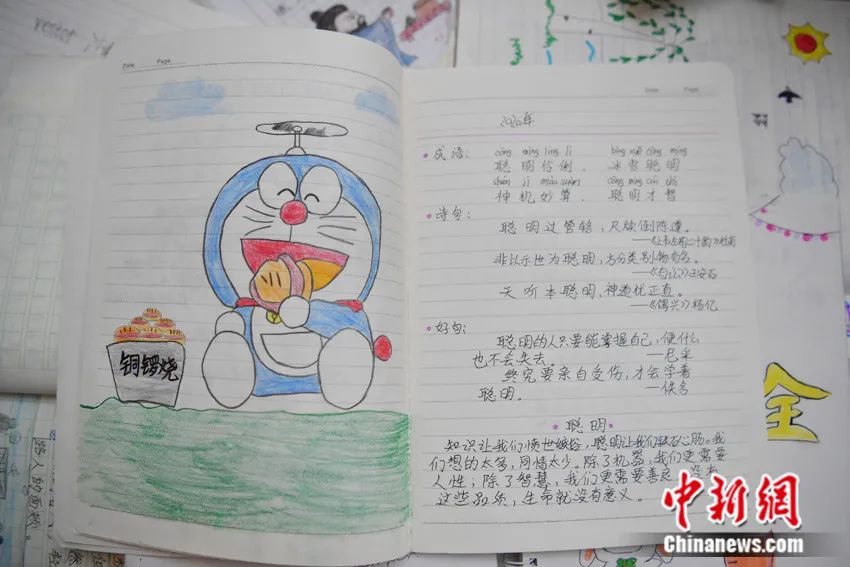 Date Page
铜锣烧
Date Page
2020年
成语:
cōng míng líng lì bīng xuě cōng míng
聪明伶俐、冰雪聪明
shén jī miào suàn cōng míng cái zhì
神机妙算、聪明才智
诗句:
聪明过管辂,尺牍倒陈遵。
非以示世为聪明,方分类别物有名。
王安石
天听本聪明,神道优正直。
《偶兴》杨亿
好句:
聪明的人只要能掌握自己,便什么
也不会失去。
——尼采
终究要亲自受伤,才会学着
聪明。
——佚名
聪明
知识让我们愤世嫉俗,聪明让我们铁石心肠。我
们想的太多,同情太少。除了机器,我们更需要
人性;除了智慧,我们更需要善良。没有
这些品质,生命就没有意义。
全
路人的面桥。
中新网
Chinanews.com